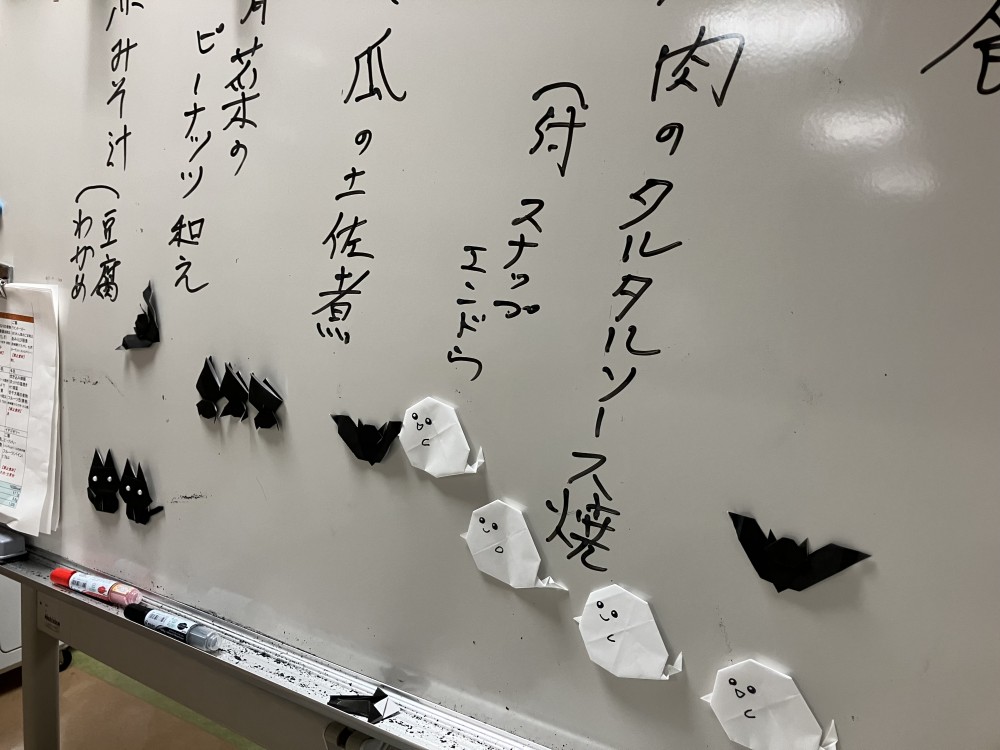 食
肉のタルタルソース焼
(付 スナップ
エンドウ
瓜の土佐煮
青菜の
ピーナッツ和え
赤みそ汁(豆腐
わかめ